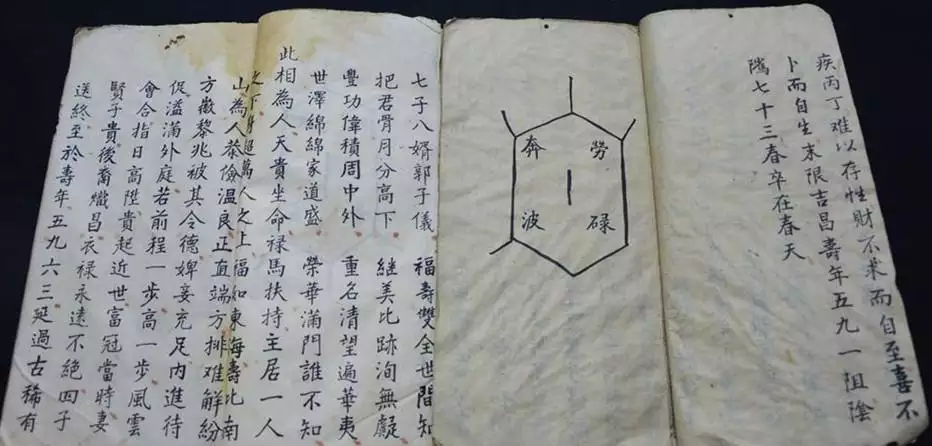 疾丙丁难以存性財不求而自至喜不
卜而自生末限吉昌壽年五九一阻陰
隲七十三春卒在春天
勞碌
奔波
七子八婿郭子儀 福壽雙全世間知
把君骨月分高下 継美比跡洵無
豐功偉積周中外 重名清望遍華夷
世澤綿綿家道盛 榮華滿門誰不知
此相為人天貴坐命禄馬扶持主居一人
之下身超萬人之上福如東海壽比南
山為人恭儉温良正直端方排难解紛
方徽黎兆被其令德婢妾充足内進待
促溢滿外庭若前程一步高一步風雲
會合指日高陞貴起近世富冠當時妻
賢子貴後裔熾昌衣禄永遠不絕四子
送終至於壽年五九六三延過古稀有